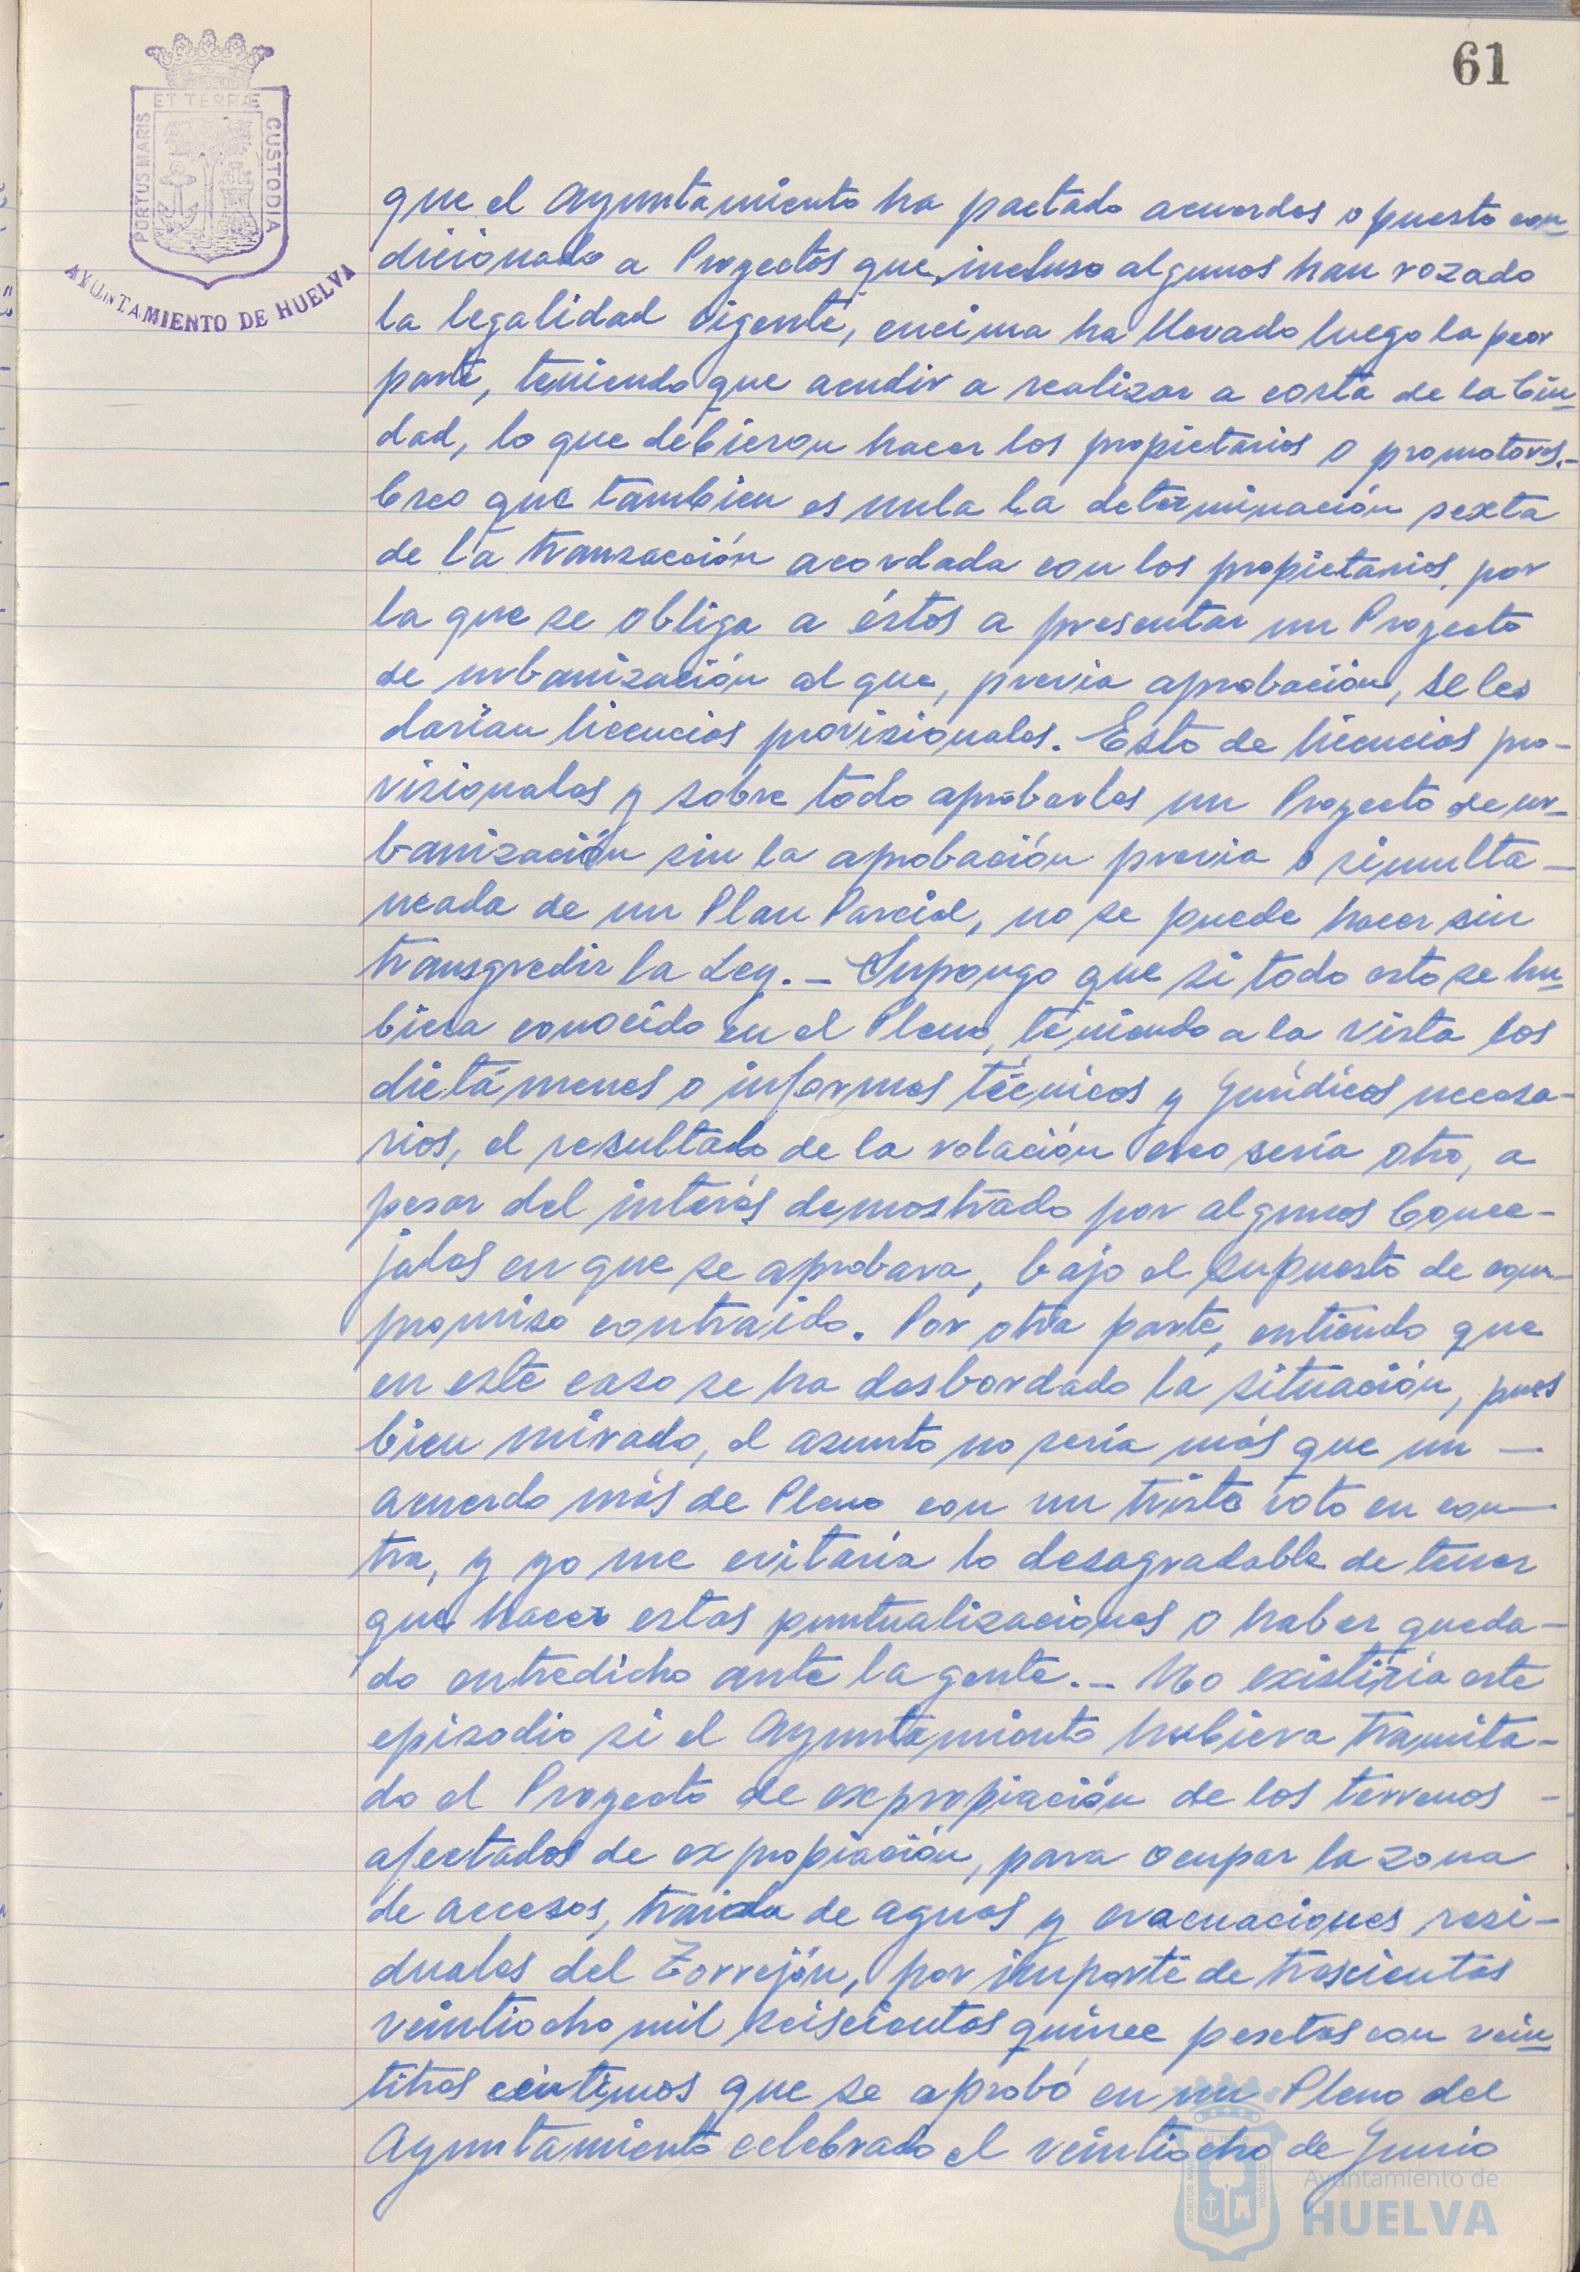 61
ET TERRÆ
PORTUS MARIS
CUSTODIA
AYUNTAMIENTO DE HUELVA
que el Ayuntamiento ha pactado acuerdos o puesto con
dicionado a Proyectos que, incluso algunos han rozado
la legalidad vigente, encima ha llevado luego la peor
parte, teniendo que acudir a realizar a costa de la Ciu
dad, lo que debieron hacer los propietarios o promotores.-
Creo que tambien es nula la determinación sexta
de la transacción acordada con los propietarios, por
la que se obliga a éstos a presentar un Proyecto
de urbanización al que, previa aprobación, se les
darían licencias provisionales. Esto de licencias pro-
visionales y sobre todo aprobarles un Proyecto de ur-
banización sin la aprobación previa o simulta-
neada de un Plan Parcial, no se puede hacer sin
transgredir la Ley.- Supongo que si todo esto se hu
biera conocido en el Pleno, teniendo a la vista los
dictámenes o informes técnicos y jurídicos necesa-
rios, el resultado de la votación creo sería otro, a
pesar del interés demostrado por algunos Conce-
jales en que se aprobara, bajo el supuesto de com-
promiso contraido. Por otra parte, entiendo que
en este caso se ha desbordado la situación, pues
bien mirado, el asunto no sería más que un -
acuerdo más de Pleno con un triste voto en con-
tra, y yo me evitaría lo desagradable de tener
que hacer estas puntualizaciones o haber queda-
do entredicho ante la gente.- No existiría este
episodio si el Ayuntamiento hubiera tramita-
do el Proyecto de expropiación de los terrenos -
afectados de expropiación, para ocupar la zona
de accesos, traida de aguas y evacuaciones resi-
duales del Torrejón, por importe de trescientas
veintiocho mil seiscientas quince pesetas con vein
titres céntimos que se aprobó en un Pleno del
Ayuntamiento celebrado el veintiocho de Junio
Ayuntamiento de
HUELVA